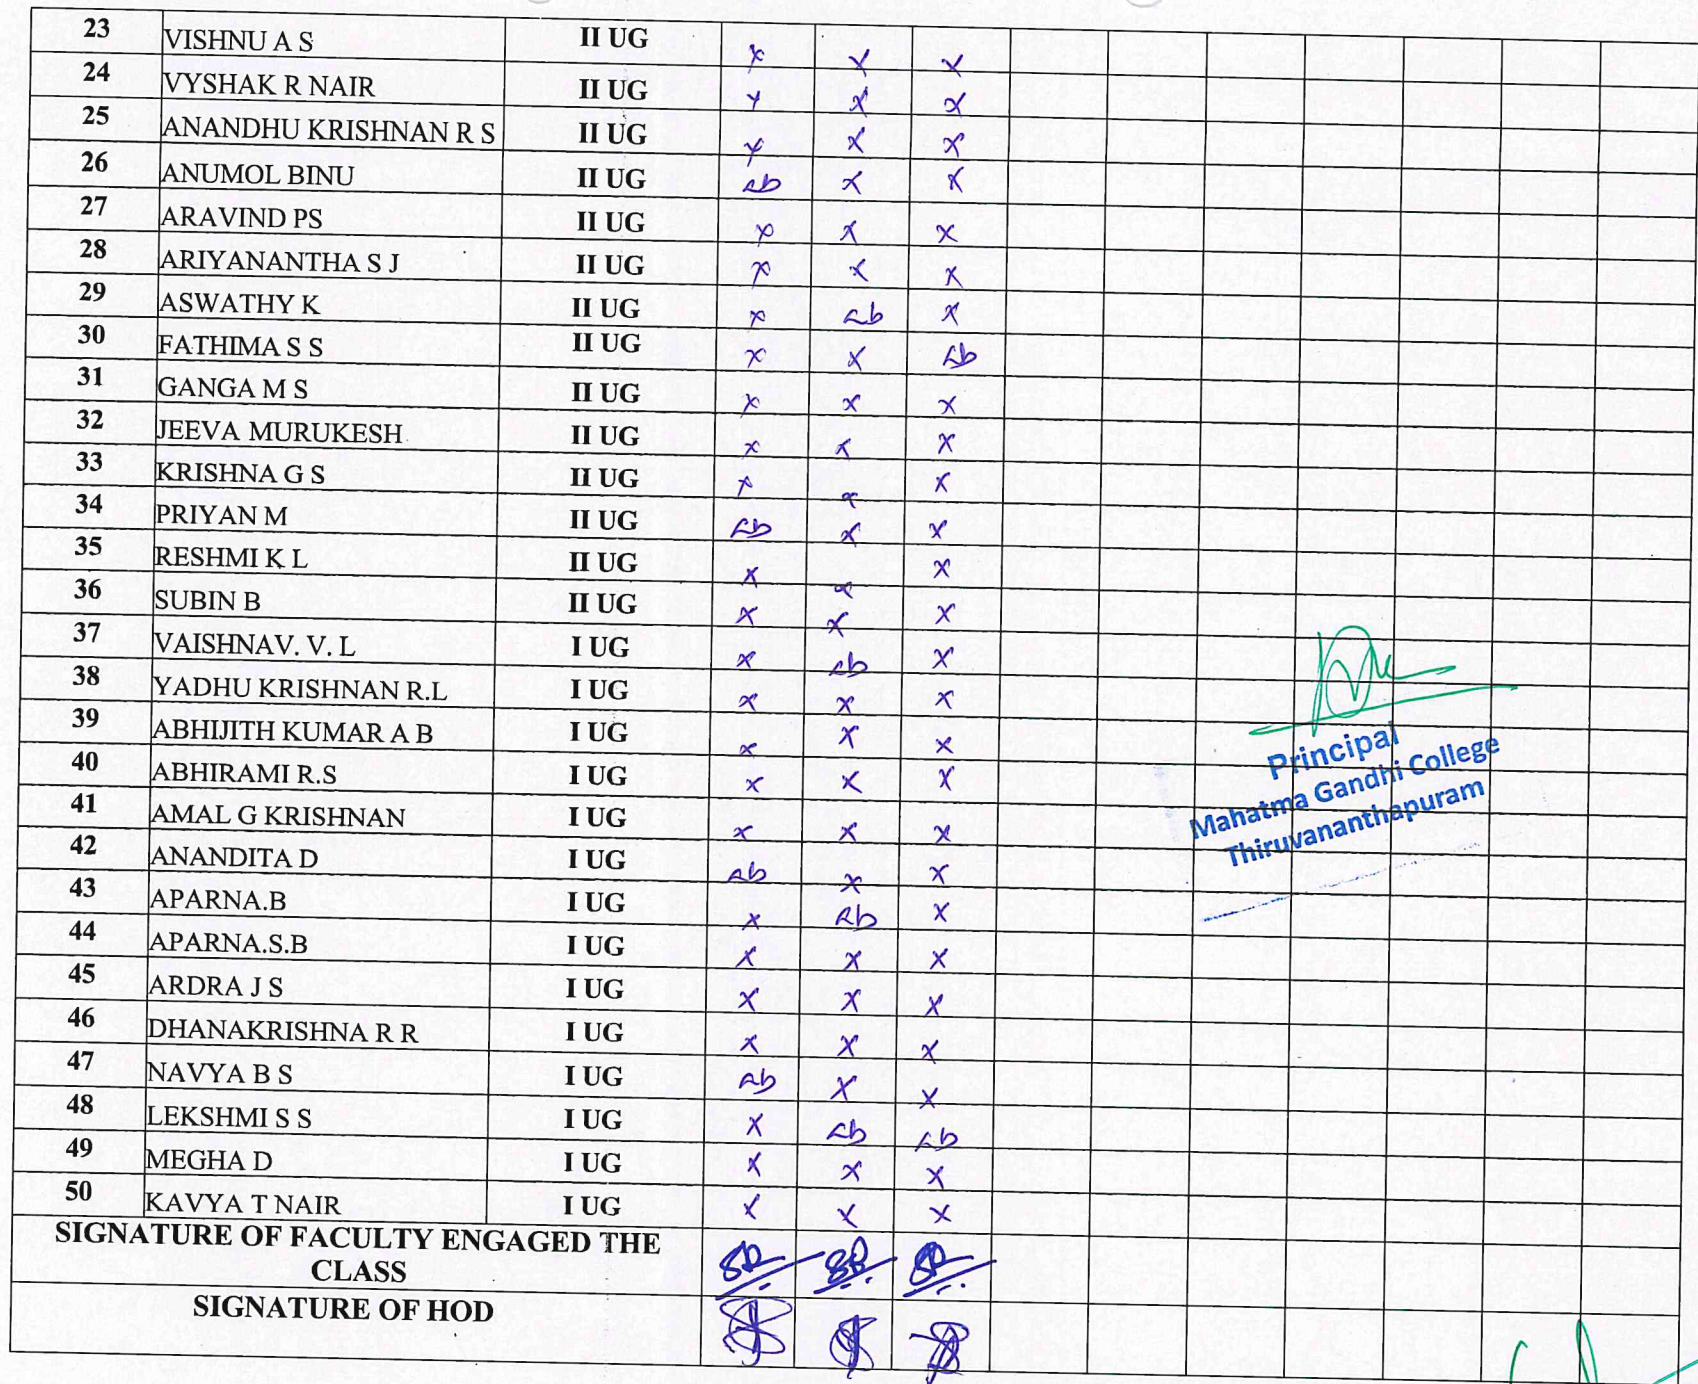 23 VISHNU A S II UG x x x
24 VYSHAK R NAIR II UG x x x
25 ANANDHU KRISHNAN R S II UG x x x
26 ANUMOL BINU II UG ab x x
27 ARAVIND PS II UG x x x
28 ARIYANANTHA S J II UG x x x
29 ASWATHY K II UG x ab x
30 FATHIMA S S II UG x x ab
31 GANGA M S II UG x x x
32 JEEVA MURUKESH II UG x x x
33 KRISHNA G S II UG x x x
34 PRIYAN M II UG ab x x
35 RESHMI K L II UG x x x
36 SUBIN B II UG x x x
37 VAISHNAV. V. L I UG x ab x
38 YADHU KRISHNAN R.L I UG x x x
39 ABHIJITH KUMAR A B I UG x x x
40 ABHIRAMI R.S I UG x x x
41 AMAL G KRISHNAN I UG x x x
42 ANANDITA D I UG ab x x
43 APARNA.B I UG x ab x
44 APARNA.S.B I UG x x x
45 ARDRA J S I UG x x x
46 DHANAKRISHNA R R I UG x x x
47 NAVYA B S I UG ab x x
48 LEKSHMI S S I UG x ab ab
49 MEGHA D I UG x x x
50 KAVYA T NAIR I UG x x x
SIGNATURE OF FACULTY ENGAGED THE
CLASS
SIGNATURE OF HOD
Principal
Mahatma Gandhi College
Thiruvananthapuram